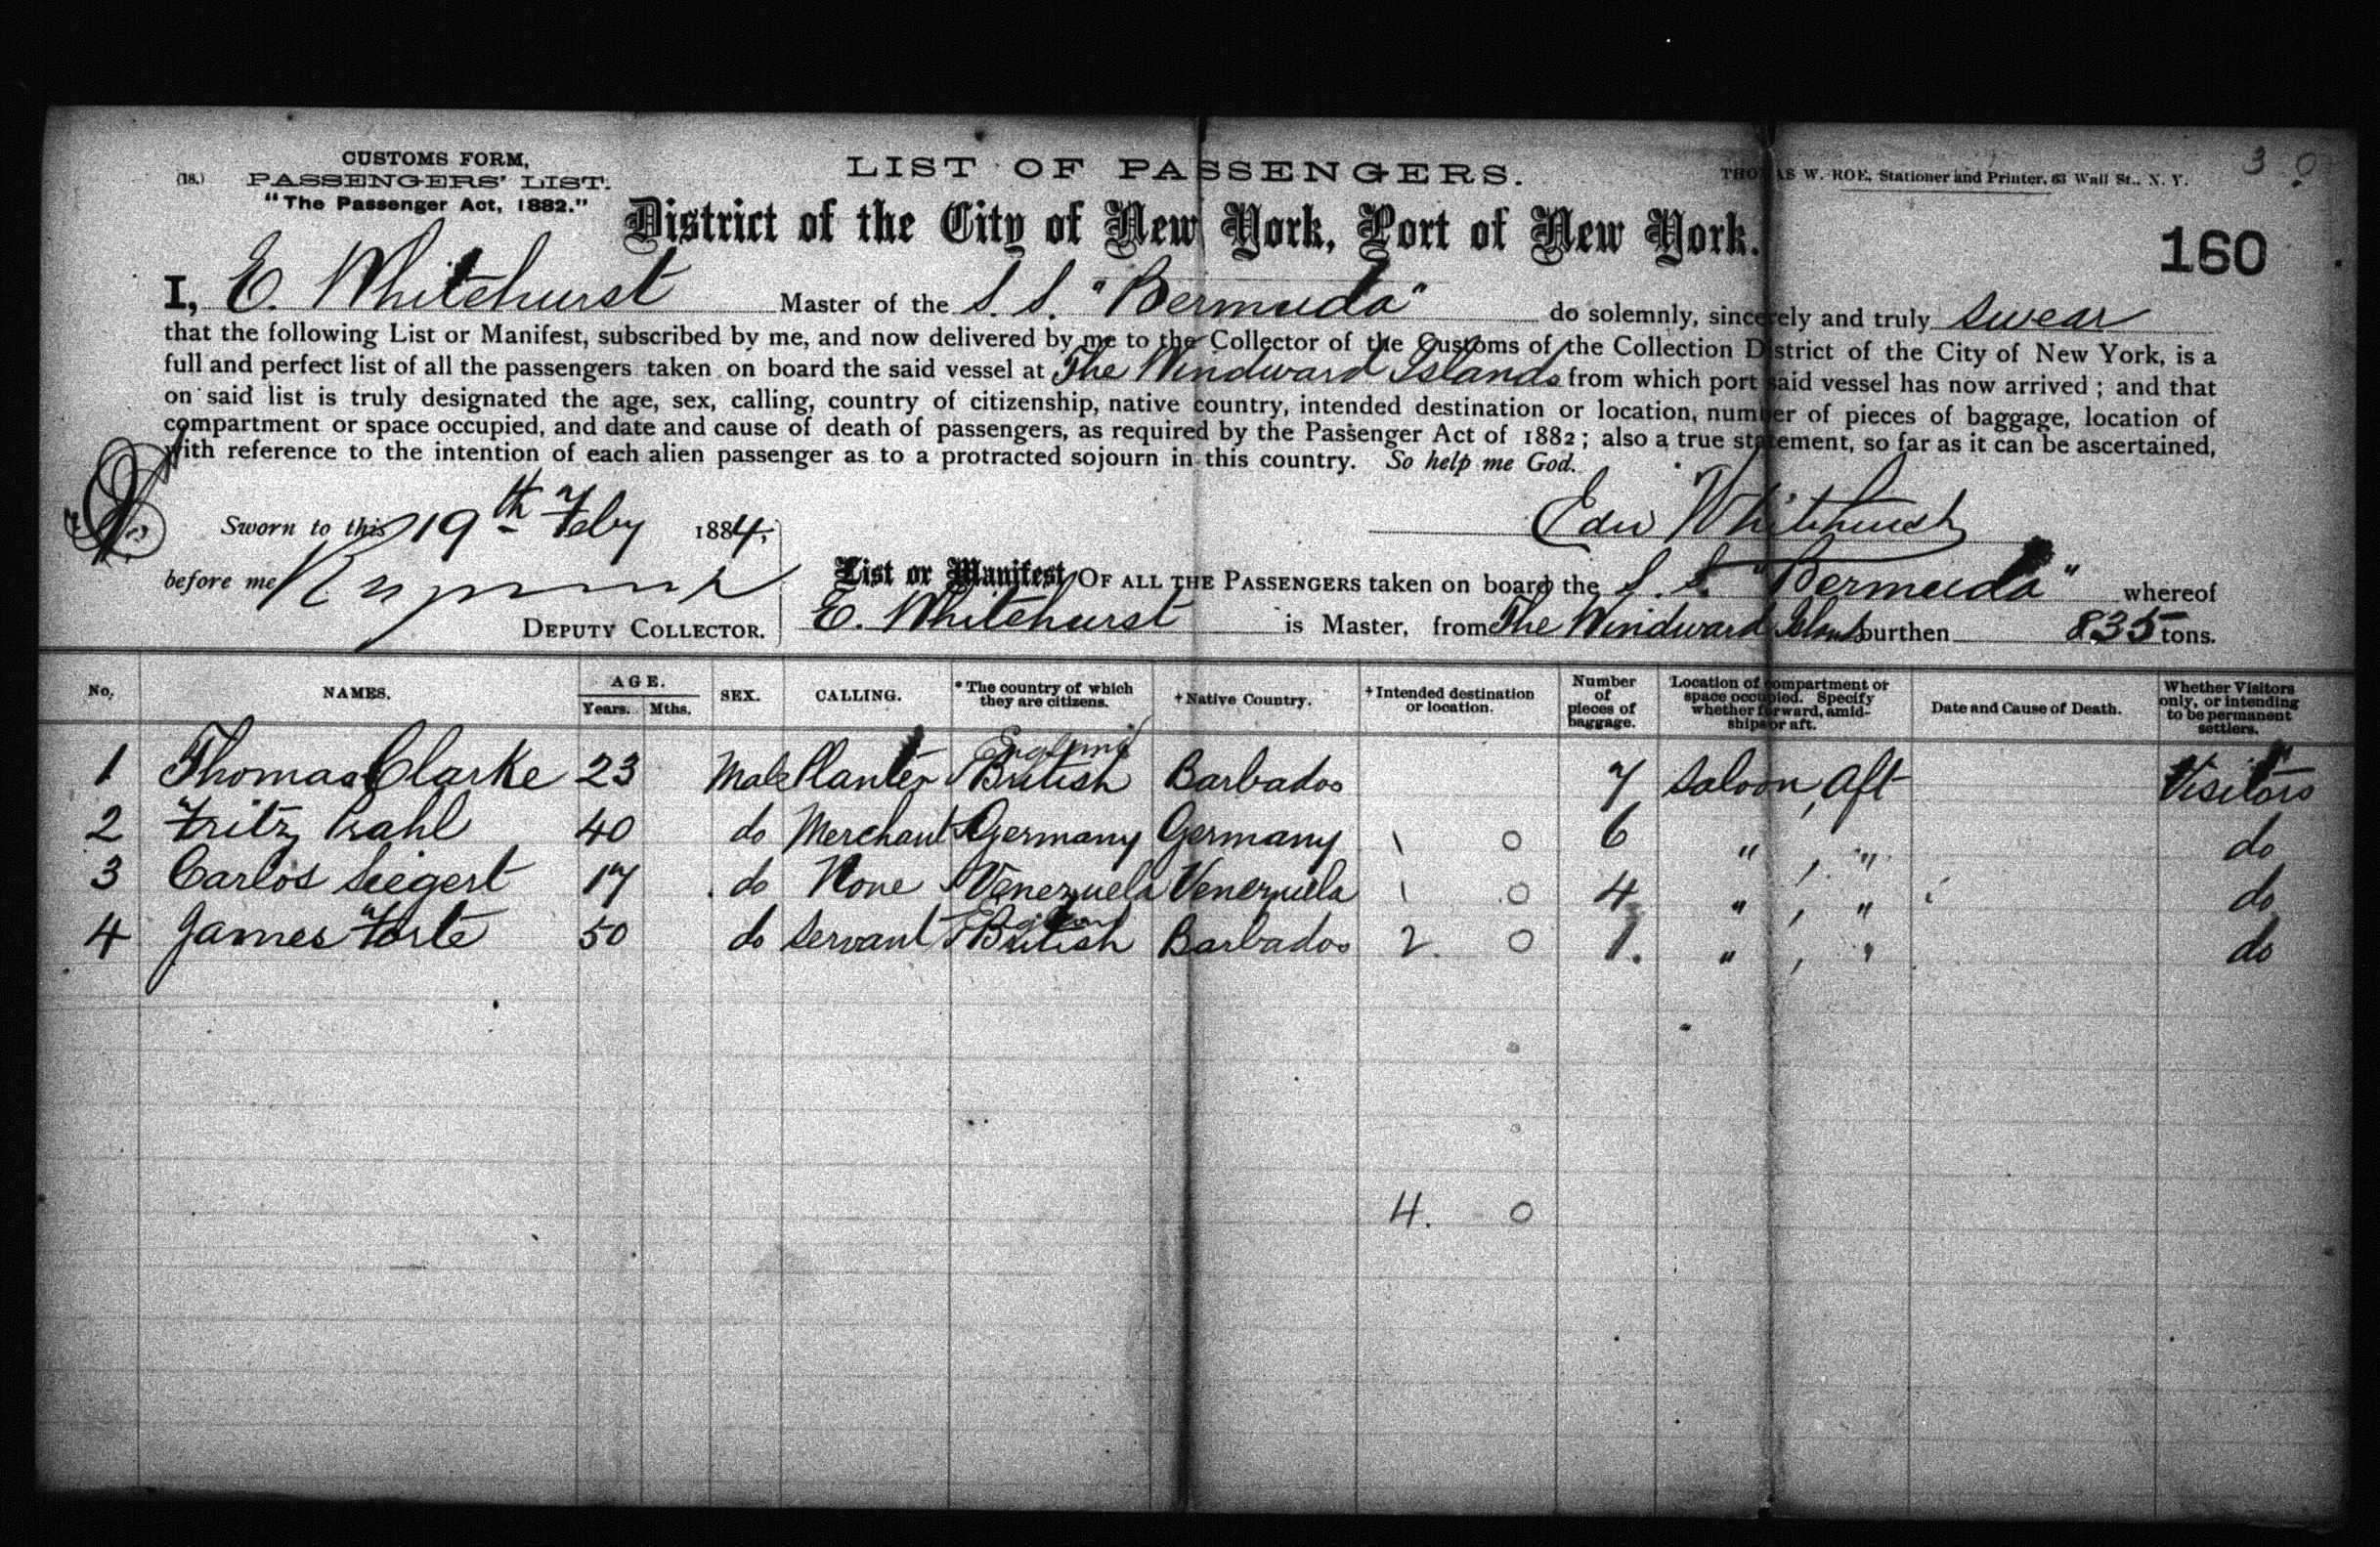 CUSTOMS FORM,
(18.) PASSENGERS' LIST.
"The Passenger Act, 1882."
LIST OF PASSENGERS.
THOMAS W. ROE, Stationer and Printer, 63 Wall St., N. Y.
3 0
District of the City of New York, Port of New York.
160
I, E. Whitehurst Master of the S. S. "Bermuda" do solemnly, sincerely and truly swear
that the following List or Manifest, subscribed by me, and now delivered by me to the Collector of the Customs of the Collection District of the City of New York, is a
full and perfect list of all the passengers taken on board the said vessel at The Windward Islands from which port said vessel has now arrived; and that
on said list is truly designated the age, sex, calling, country of citizenship, native country, intended destination or location, number of pieces of baggage, location of
compartment or space occupied, and date and cause of death of passengers, as required by the Passenger Act of 1882; also a true statement, so far as it can be ascertained,
with reference to the intention of each alien passenger as to a protracted sojourn in this country. So help me God.
Sworn to this 19th Feby 1884,
Edw Whitehurst
before me
DEPUTY COLLECTOR.
List or Manifest OF ALL THE PASSENGERS taken on board the S. S. "Bermuda" whereof
E. Whitehurst is Master, from The Windward Islands burthen 835 tons.
No. NAMES. AGE. Years. Mths. SEX. CALLING. * The country of which they are citizens. † Native Country. † Intended destination or location. Number of pieces of baggage. Location of compartment or space occupied. Specify whether forward, amidships or aft. Date and Cause of Death. Whether Visitors only, or intending to be permanent settlers.
England
1 Thomas Clarke 23 Male Planter British Barbados 7 Saloon, Aft Visitors
2 Fritz Rahl 40 do Merchant Germany Germany 1 0 6 " , " do
3 Carlos Siegert 17 do None Venezuela Venezuela 1 0 4 " , " do
England
4 James Forte 50 do Servant British Barbados 2. 0 1. " , " do
4. 0